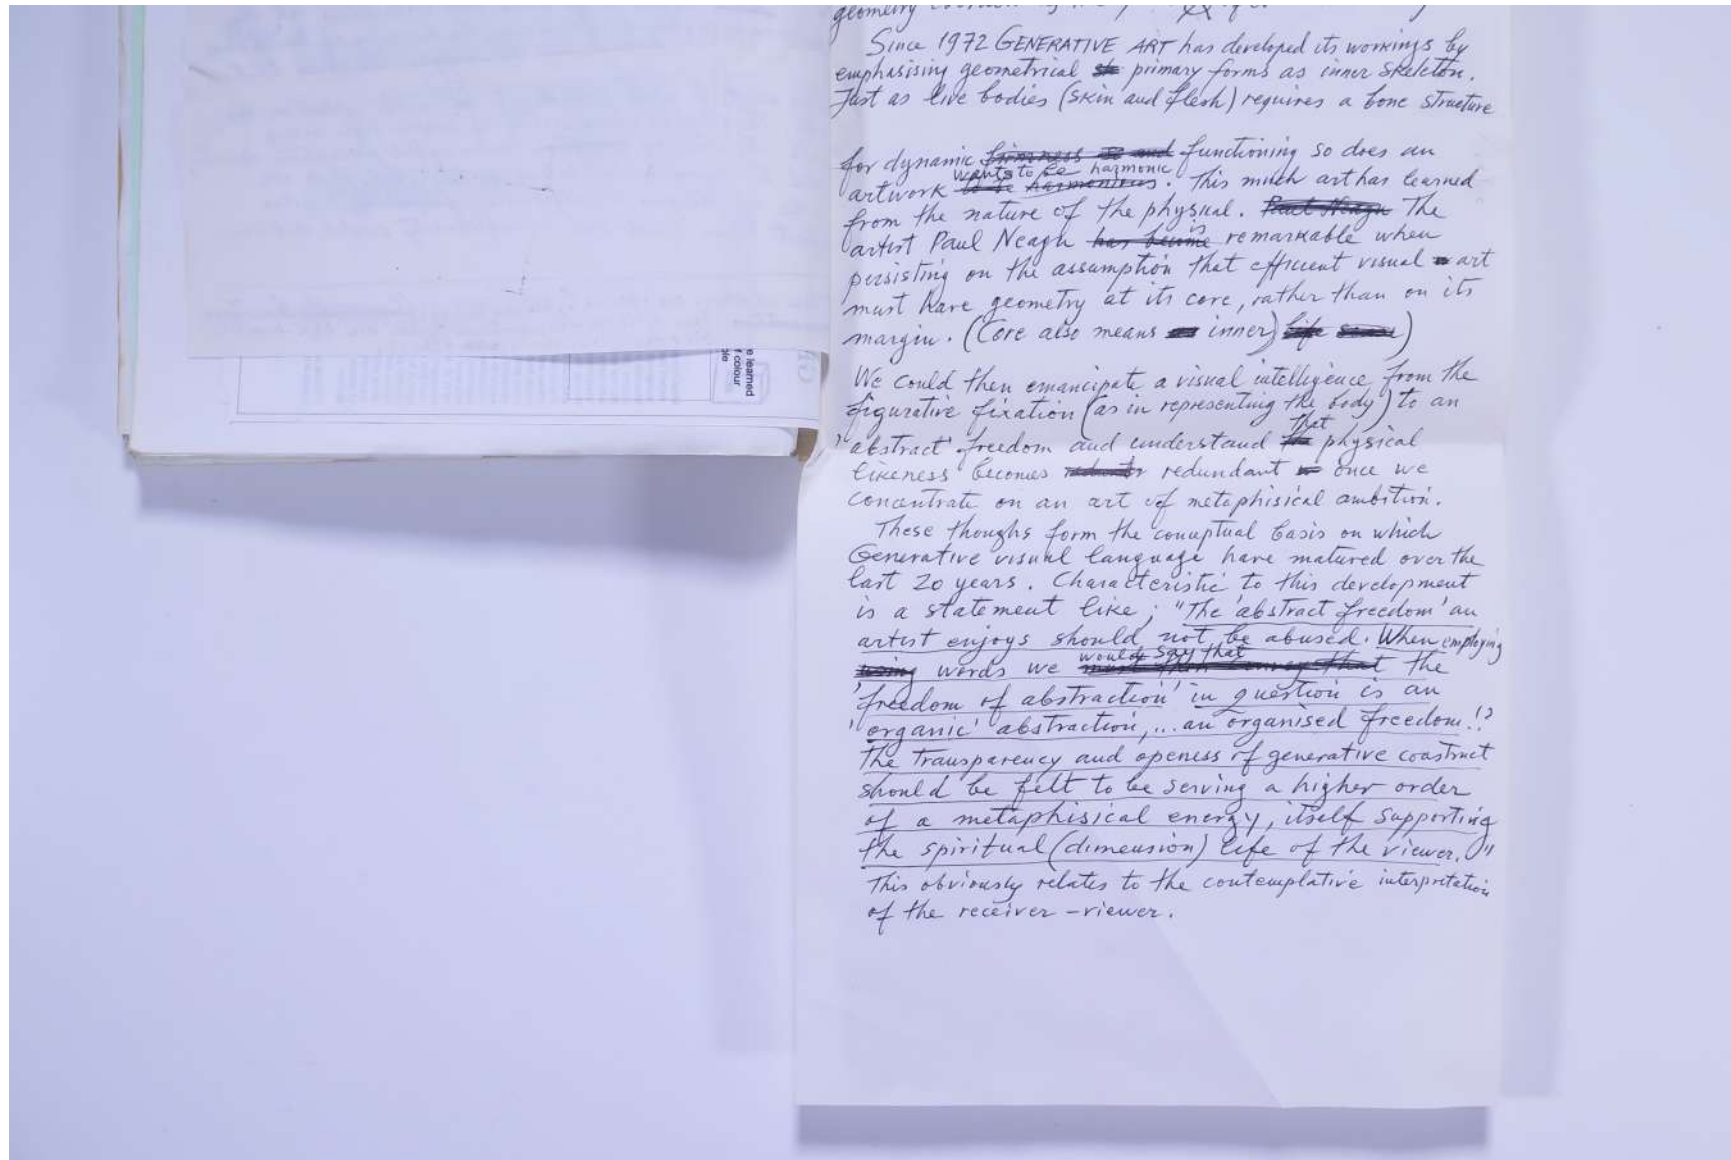 geometry
Since 1972 GENERATIVE ART has developed its workings by
emphasising geometrical primary forms as inner skeleton.
Just as live bodies (skin and flesh) requires a bone structure
for dynamic firmness so and functioning so does an
wants to be harmonic
artwork to be harmonious. This much art has learned
from the nature of the physical. Paul Neagu The
is
artist Paul Neagu has become remarkable when
persisting on the assumption that efficient visual art
must have geometry at its core, rather than on its
margin. (Core also means inner) life )
We could then emancipate a visual intelligence from the
figurative fixation (as in representing the body) to an
that
'abstract' freedom and understand physical
likeness becomes redundant once we
concentrate on an art of metaphisical ambition.
These thoughs form the conceptual basis on which
Generative visual language have matured over the
last 20 years. Characteristic to this development
is a statement like; "The 'abstract freedom' an
artist enjoys should not be abused. When employing
would say that
using words we must then convey that the
'freedom of abstraction' in question is an
'organic' abstraction,... an organised freedom!?
The transparency and openess of generative construct
should be felt to be serving a higher order
of a metaphisical energy, itself supporting
the spiritual (dimension) life of the viewer."
This obviously relates to the contemplative interpretation
of the receiver - viewer.
e learned
f colour